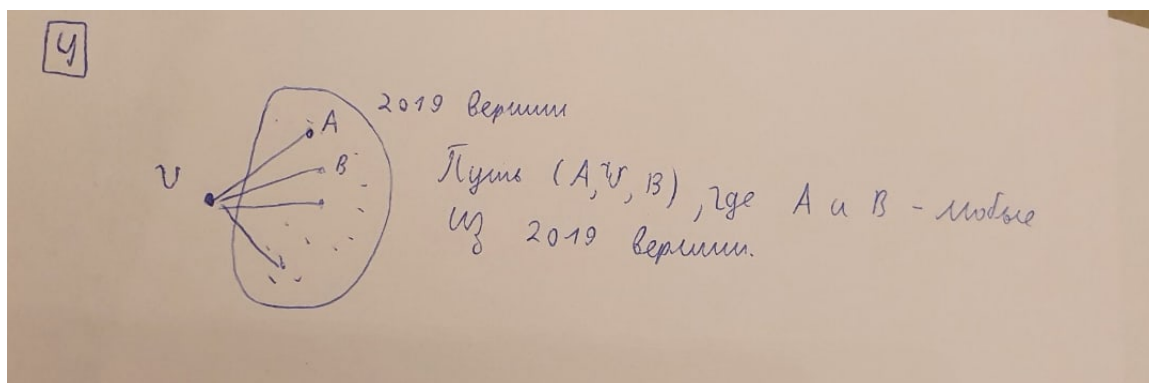 4
2019 вершин
A
B
V
Путь (A, V, B), где A и B - любые
из 2019 вершин.